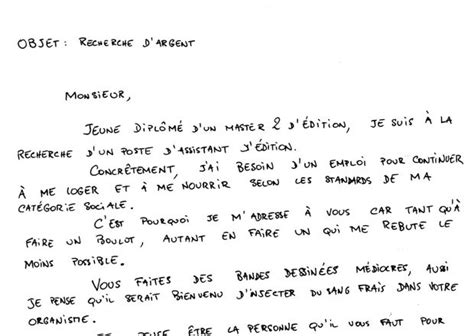 OBJET : RECHERCHE D'ARGENT
MONSIEUR,
JEUNE DIPLÔMÉ D'UN MASTER 2 D'ÉDITION, JE SUIS À LA
RECHERCHE D'UN POSTE D'ASSISTANT D'ÉDITION.
CONCRÈTEMENT, J'AI BESOIN D'UN EMPLOI POUR CONTINUER
À ME LOGER ET À ME NOURRIR SELON LES STANDARDS DE MA
CATÉGORIE SOCIALE.
C'EST POURQUOI JE M'ADRESSE À VOUS CAR TANT QU'À
FAIRE UN BOULOT, AUTANT EN FAIRE UN QUI ME REBUTE LE
MOINS POSSIBLE.
VOUS FAITES DES BANDES DESSINÉES MÉDIOCRES, AUSSI
JE PENSE QU'IL SERAIT BIENVENU D'INSECTER DU SANG FRAIS DANS VOTRE
ORGANISME.
JE PENSE ÊTRE LA PERSONNE QU'IL VOUS FAUT POUR